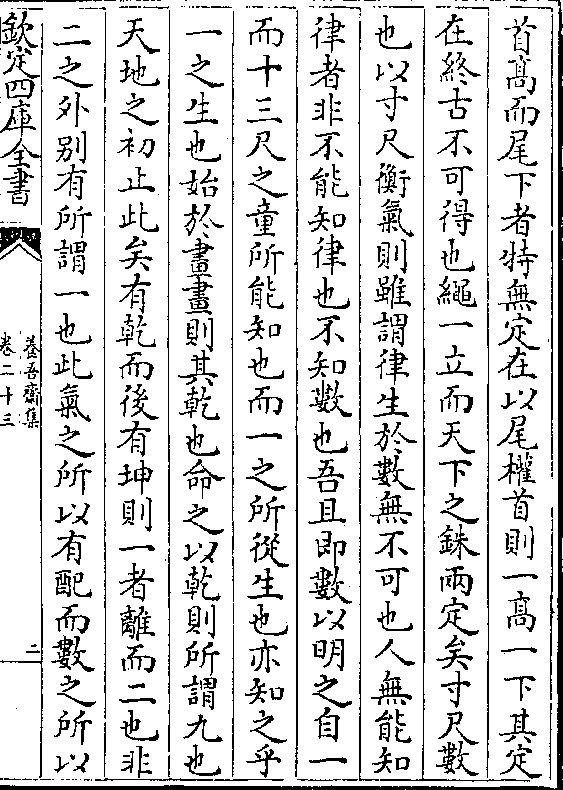 首髙而尾下者特無定在以尾權首則一髙一下其定
在終古不可得也繩一立而天下之銖兩定矣寸尺數
也以寸尺衡氣則雖謂律生於數無不可也人無能知
律者非不能知律也不知數也吾且即數以明之自一
而十三尺之童所能知也而一之所從生也亦知之乎
一之生也始於畫畫則其乾也命之以乾則所謂九也
天地之初止此矣有乾而後有坤則一者離而二也非
二之外别有所謂一也此氣之所以有配而數之所以
欽定四庫全書
養吾齋集
卷二十三
二